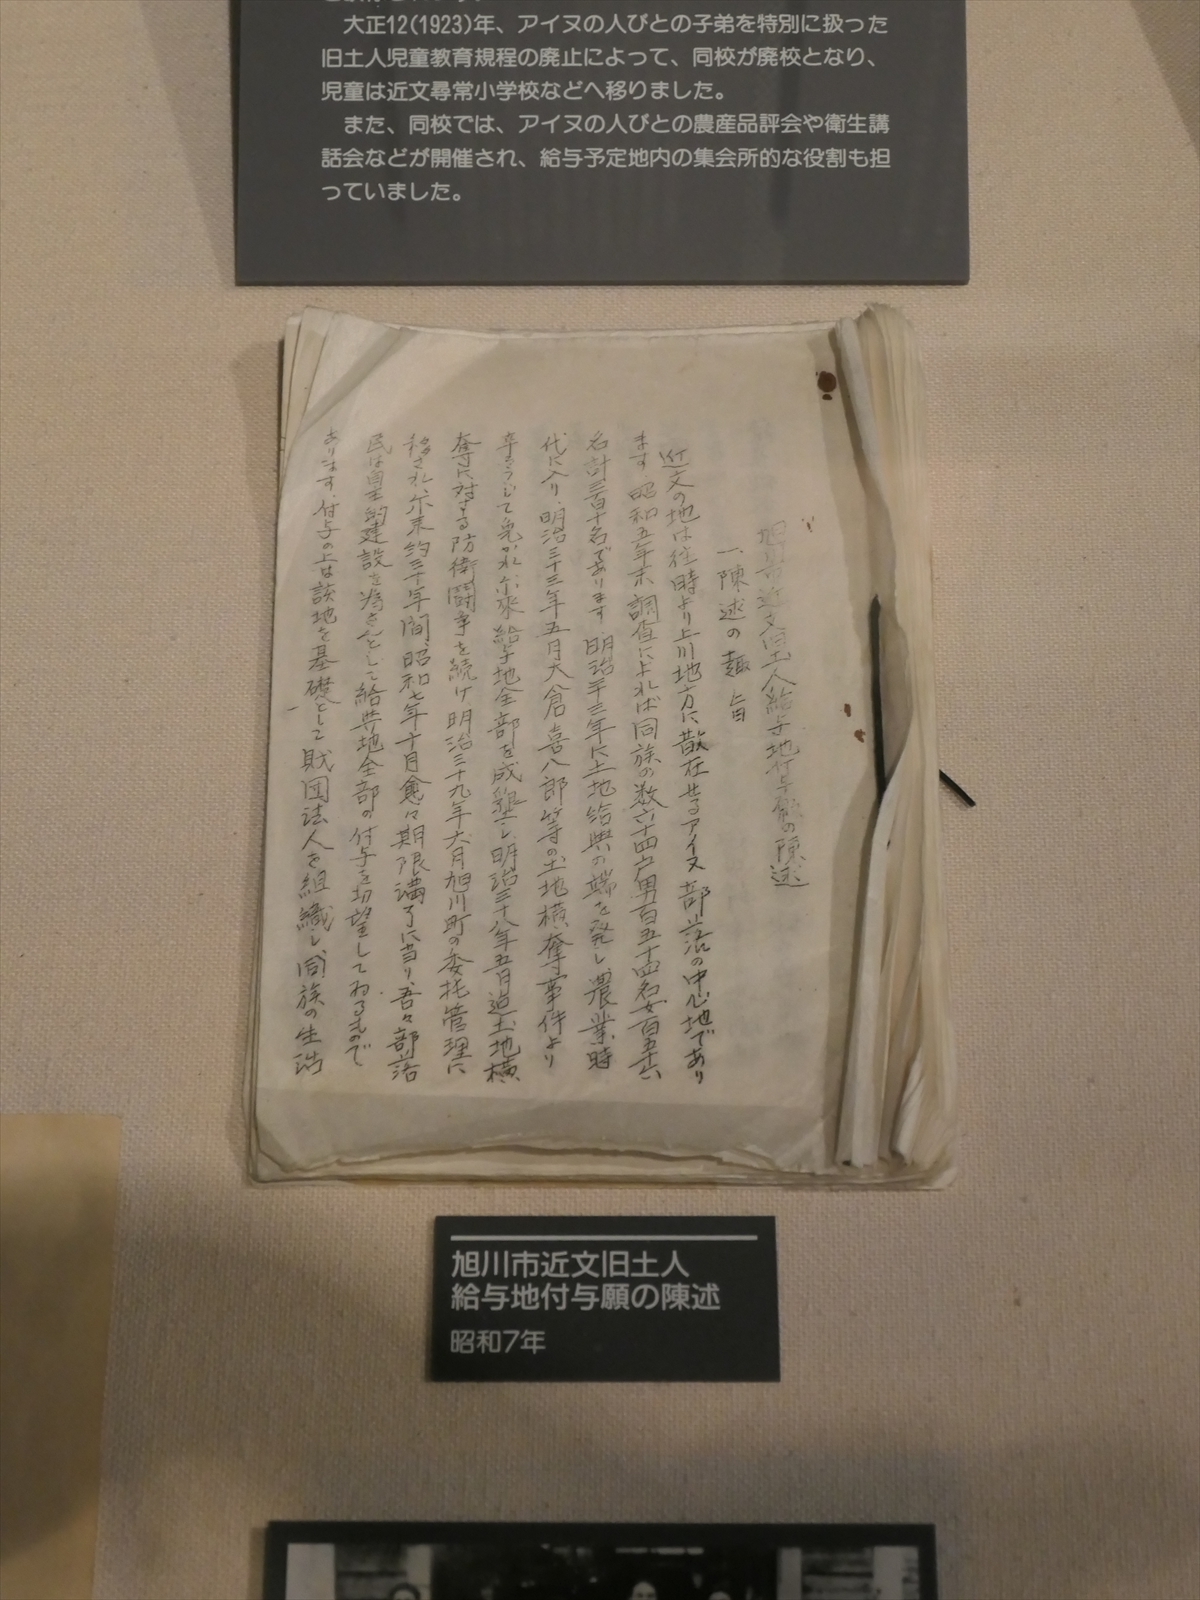 大正12(1923)年、アイヌの人びとの子弟を特別に扱った
旧土人児童教育規程の廃止によって、同校が廃校となり、
児童は近文尋常小学校などへ移りました。
また、同校では、アイヌの人びとの農産品評会や衛生講
話会などが開催され、給与予定地内の集会所的な役割も担
っていました。
旭川市近文旧土人給与地付与願の陳述
一、陳述の趣旨
近文の地は往時より上川地方に散在せるアイヌ部落の中心地であり
ます、昭和五年末調査によれば同族の数六十四戸男百五十四名女百五十六
名計三百十名であります 明治二十三年に土地給与の端を発し、農業時
代に入り、明治三十三年五月大倉喜八郎等の土地横奪事件より
辛うじて免かれ、尓来給与地全部を成墾し、明治三十八年五月迄土地横
奪に対する防衛闘争を続け明治三十九年六月旭川町の委托管理に
移され、尓来約三十年間、昭和七年十月愈々期限満了に当り、吾々部落
民は自主的建設を為さんとして給与地全部の付与を切望してゐるもので
あります、付与の上は該地を基礎として財団法人を組織し、同族の生活
旭川市近文旧土人
給与地付与願の陳述
昭和7年